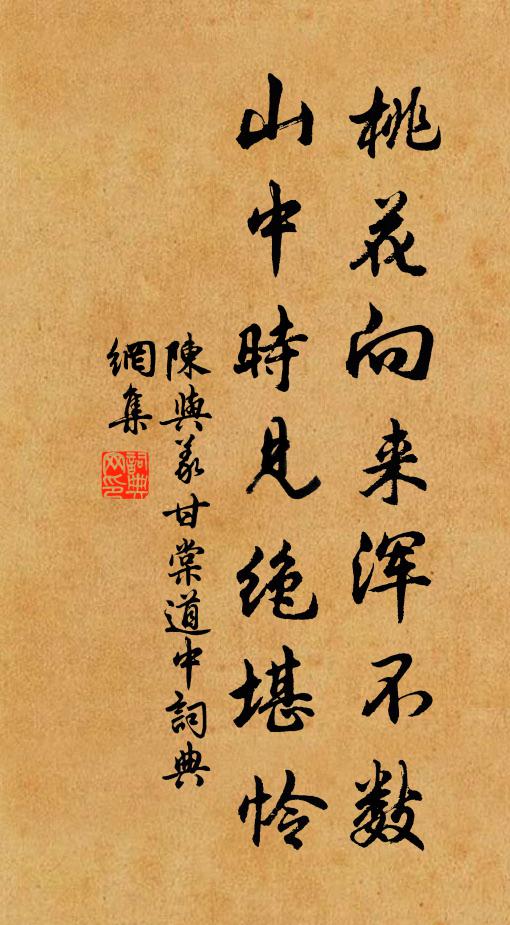 桃花向来浑不数
山中時見绝堪怜
陳與義甘棠道中詞典
網集
詞典网印